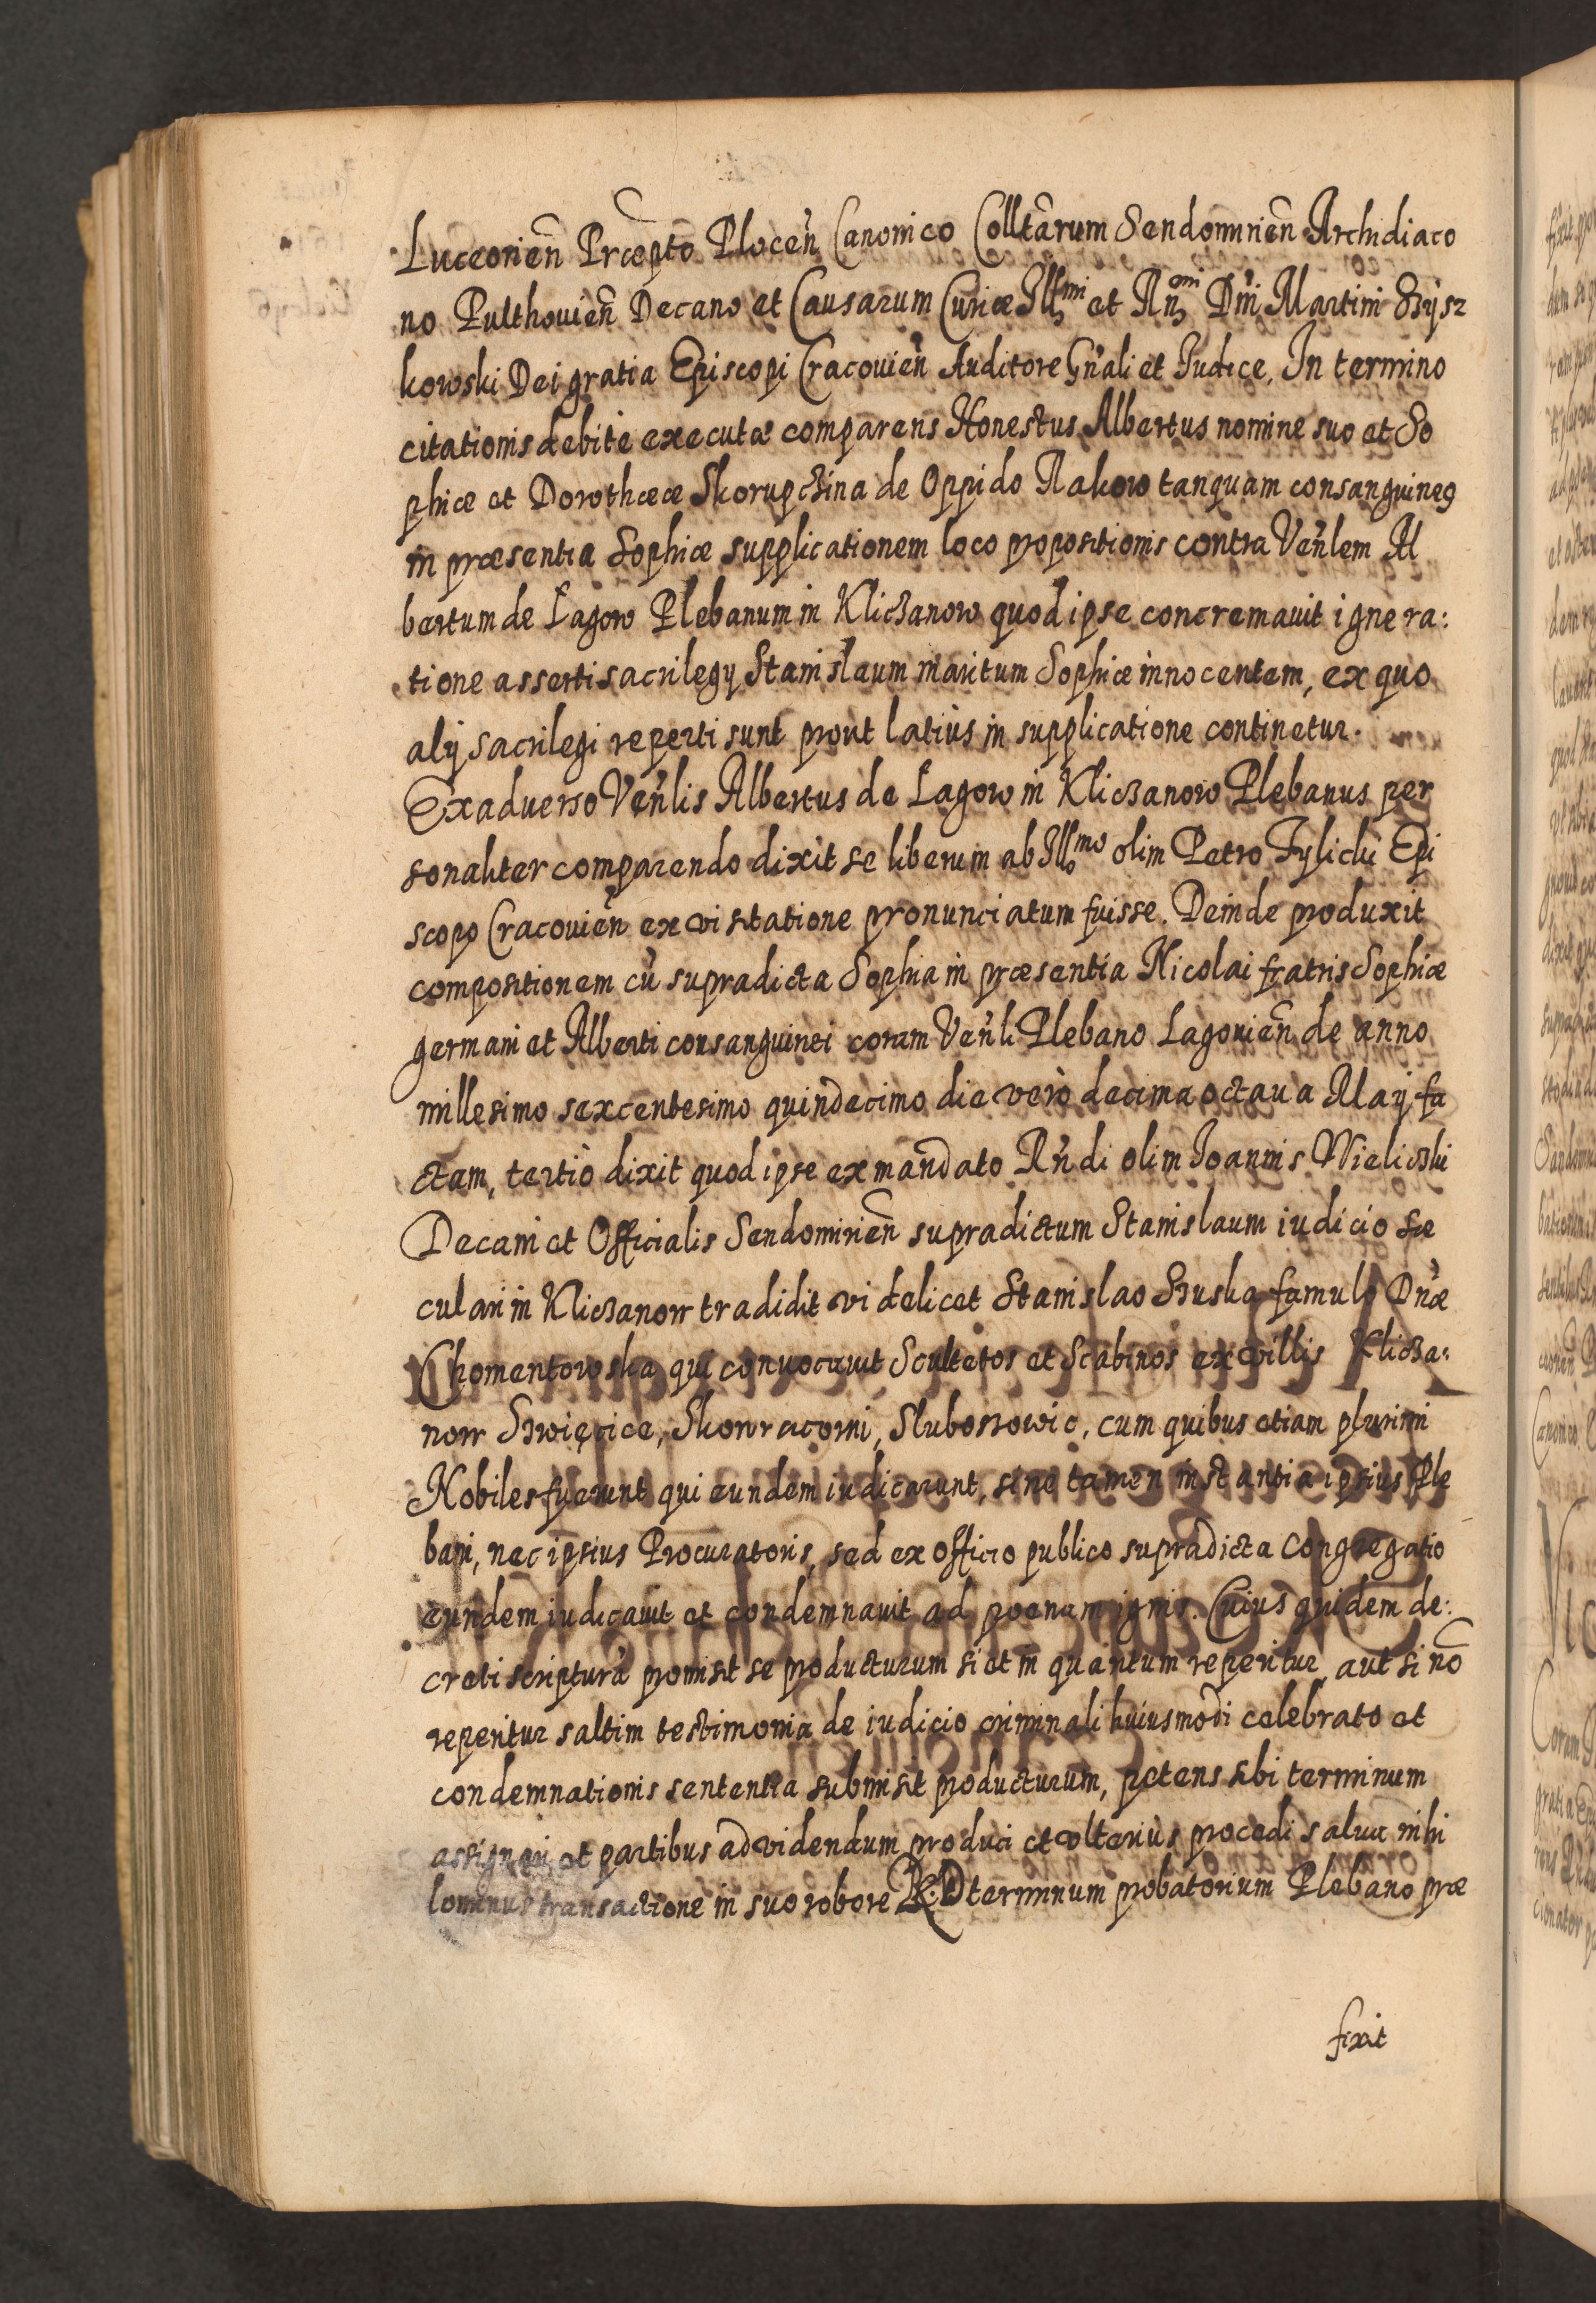 Luceorien̄ Præpto Plocen̄ Canonico Colltārum Sendomirien̄ Archidiaco
no Pulthouien̄ Decano et Causarum Curiæ Illmi et Rn̄ Dn̄i Martini Szysz
kowski Dei gratia Episcopi Cracouien̄ Auditore Gn̄ali et Iudice, In termino
citationis debitè executæ comparens Honestus Albertus nomine suo et So
phiæ et Dorothææ Skorupczina de Oppido Rakow tanquam consanguineꝰ
in præsentia Sophiæ supplicationem loco propositionis contra Ven̄lem Al
bertum de Łagow Plebanum in Kliczanow quod ipse concremauit igne ra:
tione asserti sacrilegij Stanislaum maritum Sophiæ innocentem, ex quo
alij sacrilegi reperti sunt prout latiùs in supplicatione continetur.
Ex aduerso Ven̄lis Albertus de Łagow in Kliczanow Plebanus per
sonaliter comparendo dixit se liberum ab Illmo olim Petro Tylicki Epi
scopo Cracouien̄ ex visitatione pronunciatum fuisse. Deinde produxit
compositionem cū supradicta Sophia in præsentia Nicolai fratris Sophiæ
germani et Alberti consanguinei coram Ven̄li Plebano Lagouien̄ de anno
millesimo sexcentesimo quindecimo die verò decima octaua Maij fa
ctam, tertiò dixit quod ipse ex mandato Rn̄di olim Ioannis Wieliczki
Decani et Officialis Sendomirien̄ supradictum Stanislaum iudicio sæ
culari in Kliczanow tradidit videlicet Stanislao Szuska famulo Dn̄æ
Chomentowska qui conuocauit Scultetos et Scabinos ex villis Kliczа:
now Szwięcice, Skowraczni, Sluboszowic, cum quibus etiam plurimi
Nobiles fuerunt qui eundem iudicarunt, sine tamen instantia ipsius Ple
bani, nec ipsius Procuratoris, sed ex officio publico supradicta congregatio
eundem iudicauit et condemnauit ad poenam ignis. Cuius quidem de:
creti scripturā promisit se producturum si et in quantum reperitur, aut si nō
reperitur saltim testimonia de iudicio criminali huiusmodi celebrato et
condemnationis sententia submisit producturum, petens sibi terminum
assignari et partibus ad videndum produci et vlteriùs procedi salua nihi
lominus transactione in suo robore R. D terminum probatorium Plebano præ
fixit